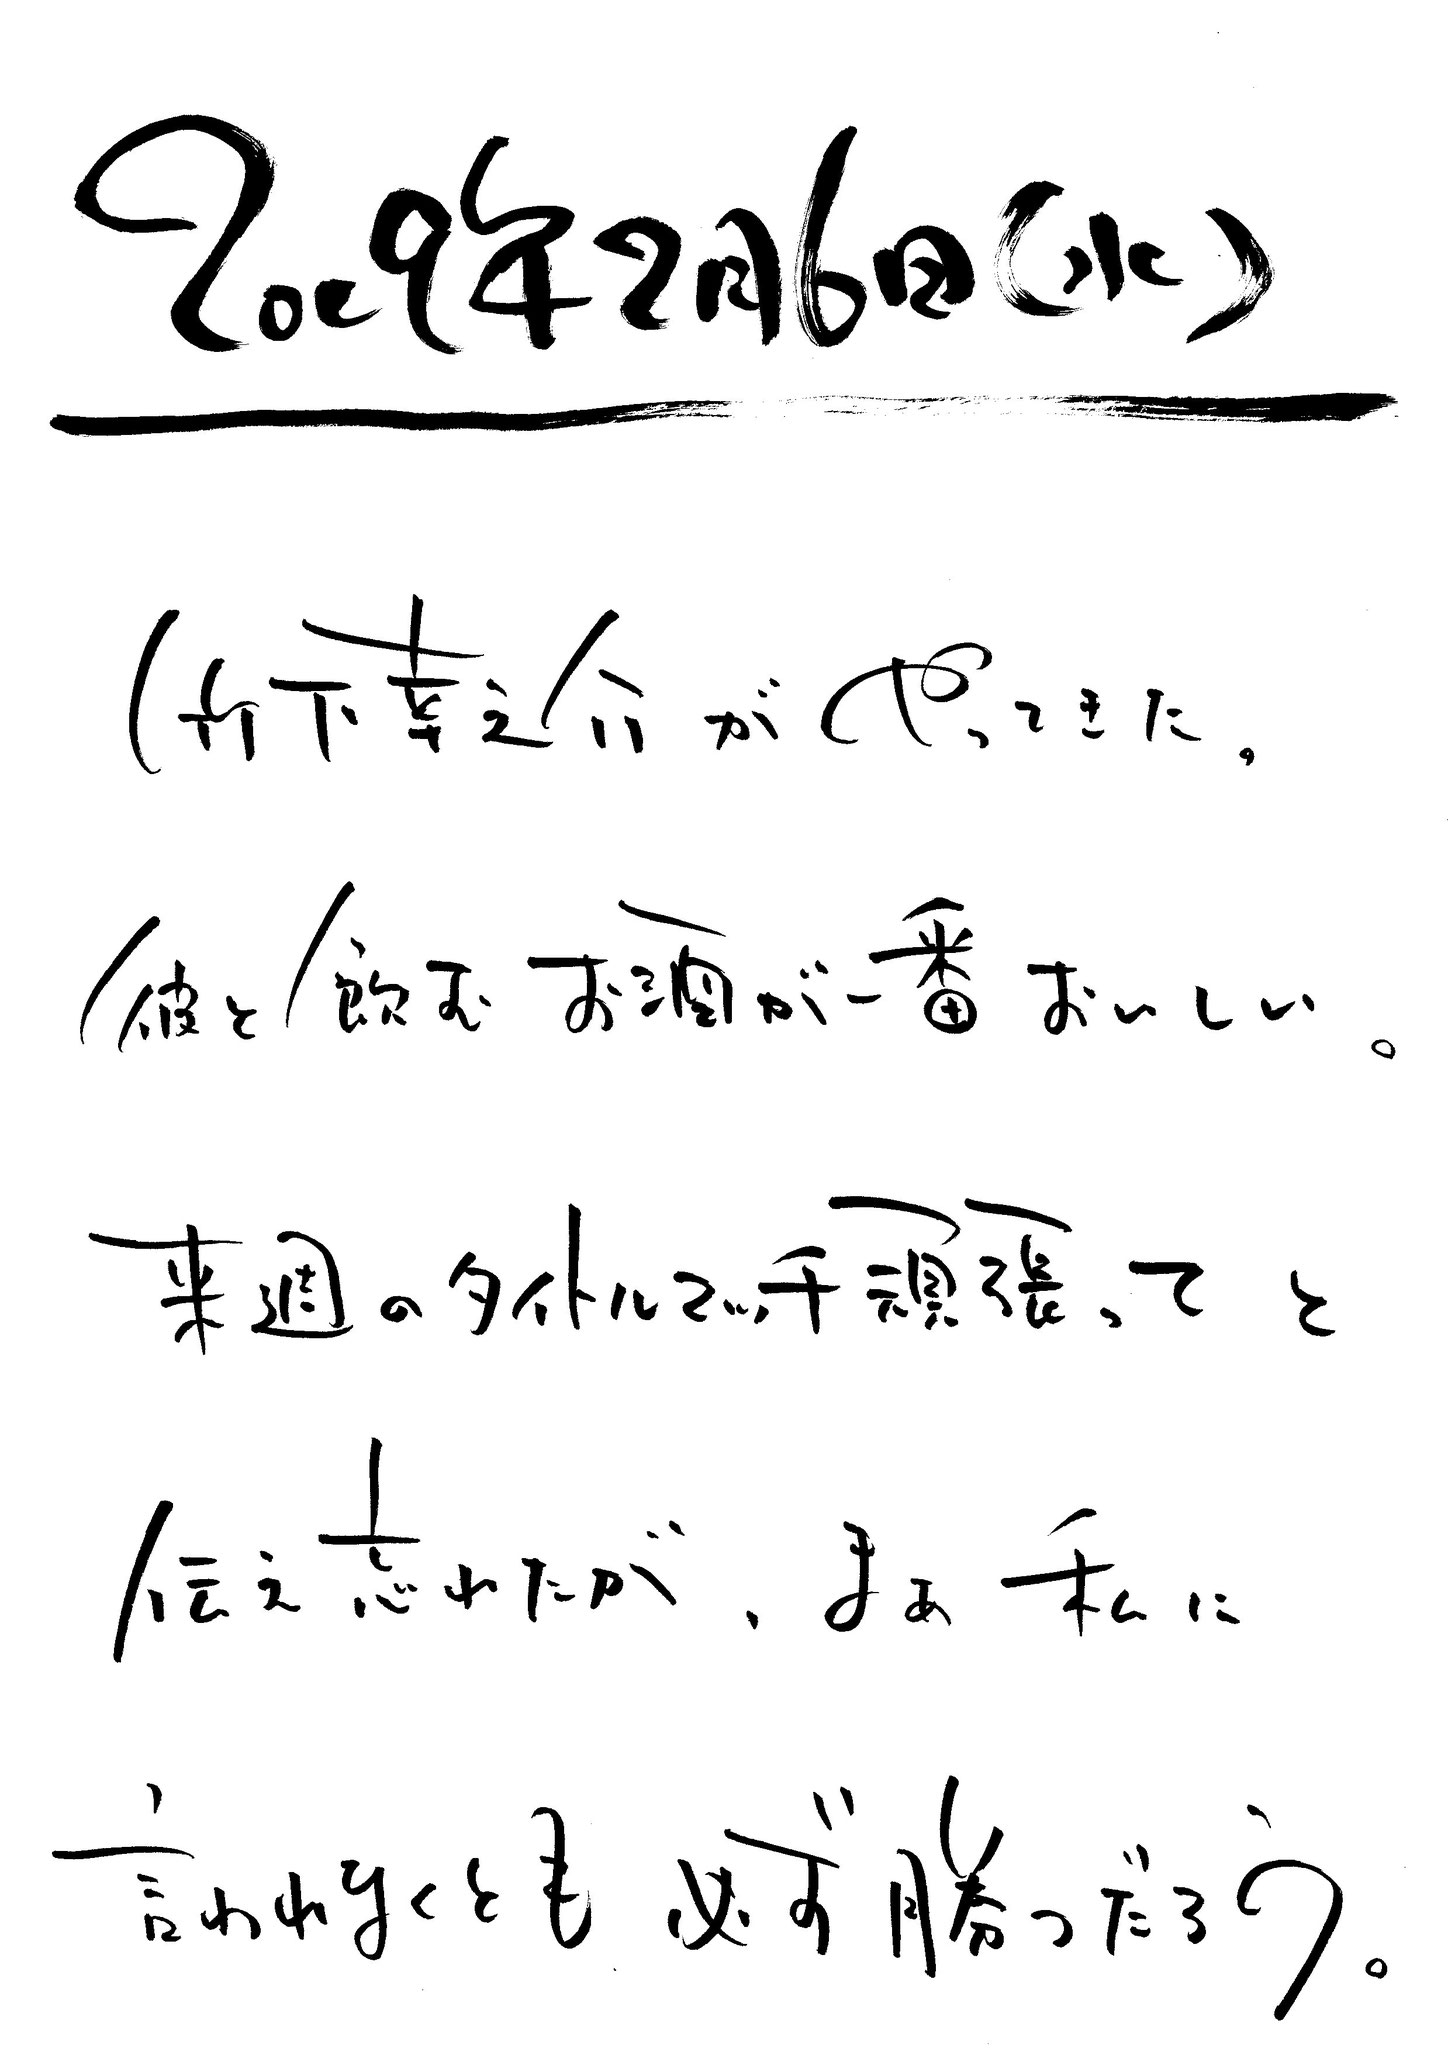 2019年2月6日(水)
竹下幸之介がやってきた。
彼と飲むお酒が一番おいしい。
来週のタイトルマッチ頑張ってと
伝え忘れたが、まぁ私に
言われなくとも必ず勝つだろう。